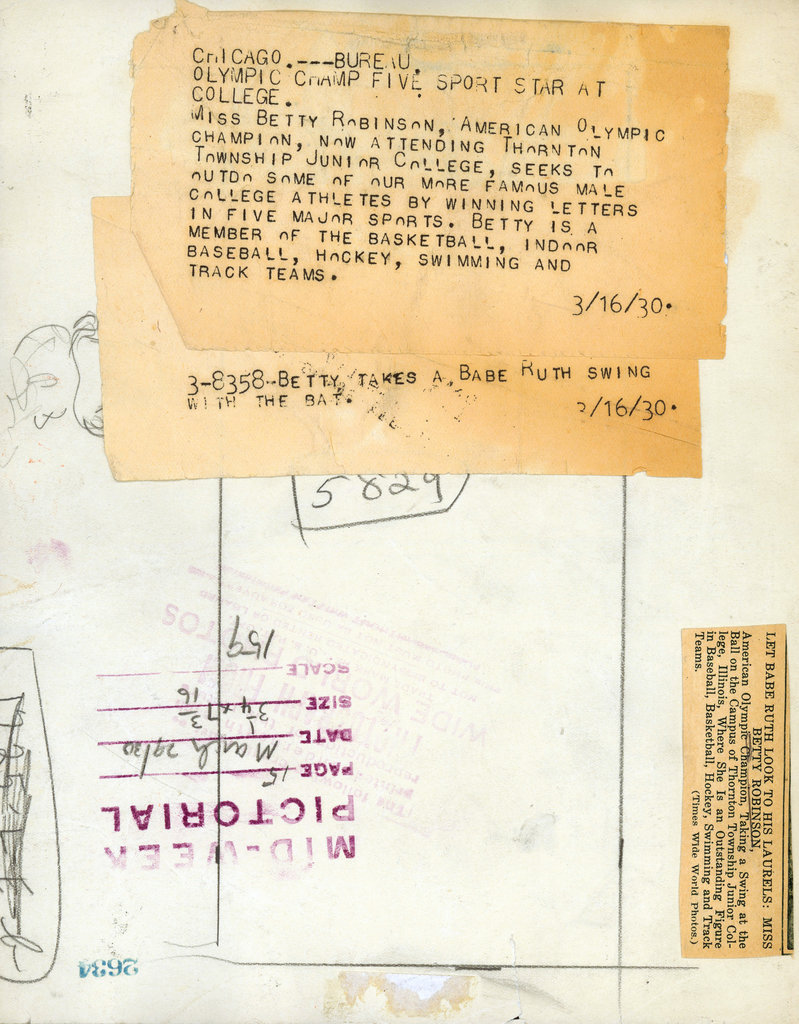 CHICAGO.---BUREAU.
OLYMPIC CHAMP FIVE SPORT STAR AT
COLLEGE.
MISS BETTY ROBINSON, AMERICAN OLYMPIC
CHAMPION, NOW ATTENDING THORNTON
TOWNSHIP JUNIOR COLLEGE, SEEKS TO
OUTDO SOME OF OUR MORE FAMOUS MALE
COLLEGE ATHLETES BY WINNING LETTERS
IN FIVE MAJOR SPORTS. BETTY IS A
MEMBER OF THE BASKETBALL, INDOOR
BASEBALL, HOCKEY, SWIMMING AND
TRACK TEAMS.
3/16/30.
3-8358-BETTY, TAKES A BABE RUTH SWING
WITH THE BAT.
3/16/30.
5829
LET BABE RUTH LOOK TO HIS LAURELS: MISS
BETTY ROBINSON,
American Olympic Champion, Taking a Swing at the
Ball on the Campus of Thornton Township Junior Col-
lege, Illinois, Where She Is an Outstanding Figure
in Baseball, Basketball, Hockey, Swimming and Track
Teams.
(Times Wide World Photos.)
MID-WEEK
PICTORIAL
PAGE 15
DATE March 29/30
SIZE
SCALE 159
WIDE WORLD PHOTOS
2634